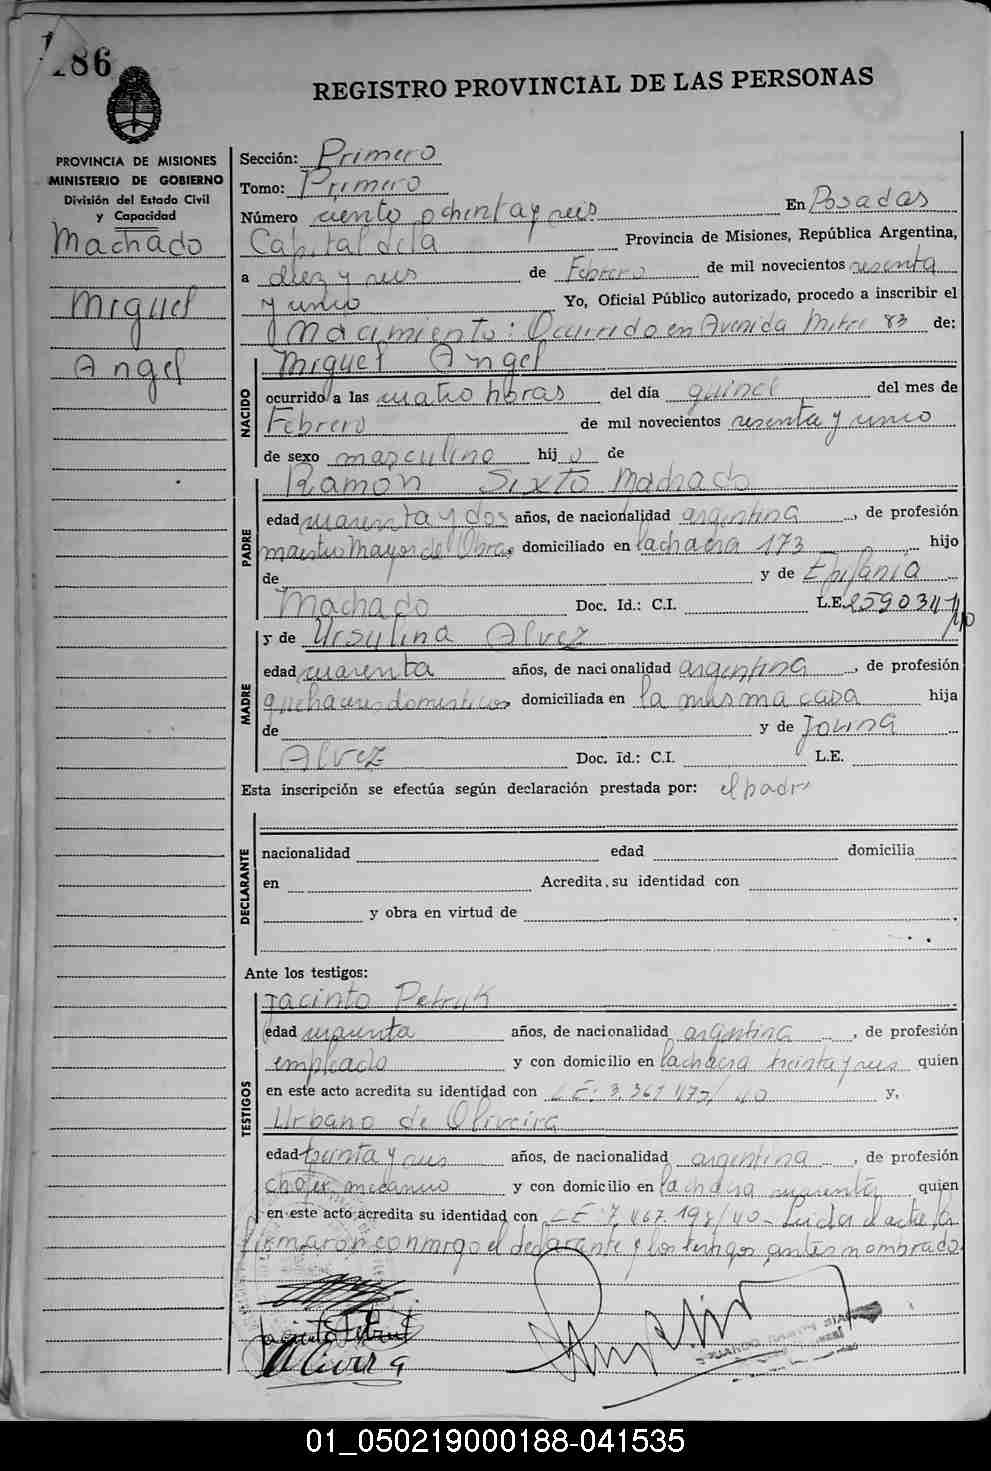 186
REGISTRO PROVINCIAL DE LAS PERSONAS
PROVINCIA DE MISIONES
MINISTERIO DE GOBIERNO
División del Estado Civil
y Capacidad
Machado
Miguel
Angel
Sección: Primero
Tomo: Primero
Número ciento ochenta y seis En Posadas
Capital de la Provincia de Misiones, República Argentina,
a diez y seis de Febrero de mil novecientos sesenta
y uno Yo, Oficial Público autorizado, procedo a inscribir el
Nacimiento: Ocurrido en Avenida Mitre 83 de:
NACIDO
Miguel Angel
ocurrido a las cuatro horas del día quince del mes de
Febrero de mil novecientos sesenta y uno
de sexo masculino hij o de
PADRE
Ramón Sixto Machado
edad cuarenta y dos años, de nacionalidad argentina, de profesión
maestro Mayor de Obras domiciliado en la chacra 173 hijo
de y de Epifania
Machado Doc. Id.: C.I. L.E.
MADRE
y de Ursulina Alvez
edad cuarenta años, de nacionalidad argentina, de profesión
quehaceres domesticos domiciliada en la misma casa hija
de y de Jovina
Alvez Doc. Id.: C.I. L.E.
Esta inscripción se efectúa según declaración prestada por: el padre
DECLARANTE
nacionalidad edad domicilia
en Acredita su identidad con
y obra en virtud de
Ante los testigos:
TESTIGOS
Jacinto Petruk
edad cuarenta años, de nacionalidad argentina, de profesión
empleado y con domicilio en la chacra treinta y seis quien
en este acto acredita su identidad con L E: y,
Urbano de Oliveira
edad treinta y seis años, de nacionalidad argentina, de profesión
chofer mecanico y con domicilio en la chacra cuarenta quien
en este acto acredita su identidad con L E 7.467.198/40- Leida el acta, la
firmaron conmigo el declarante y los testigos antes nombrado
Jacinto Petruk
Oliveira
01_050219000188-041535